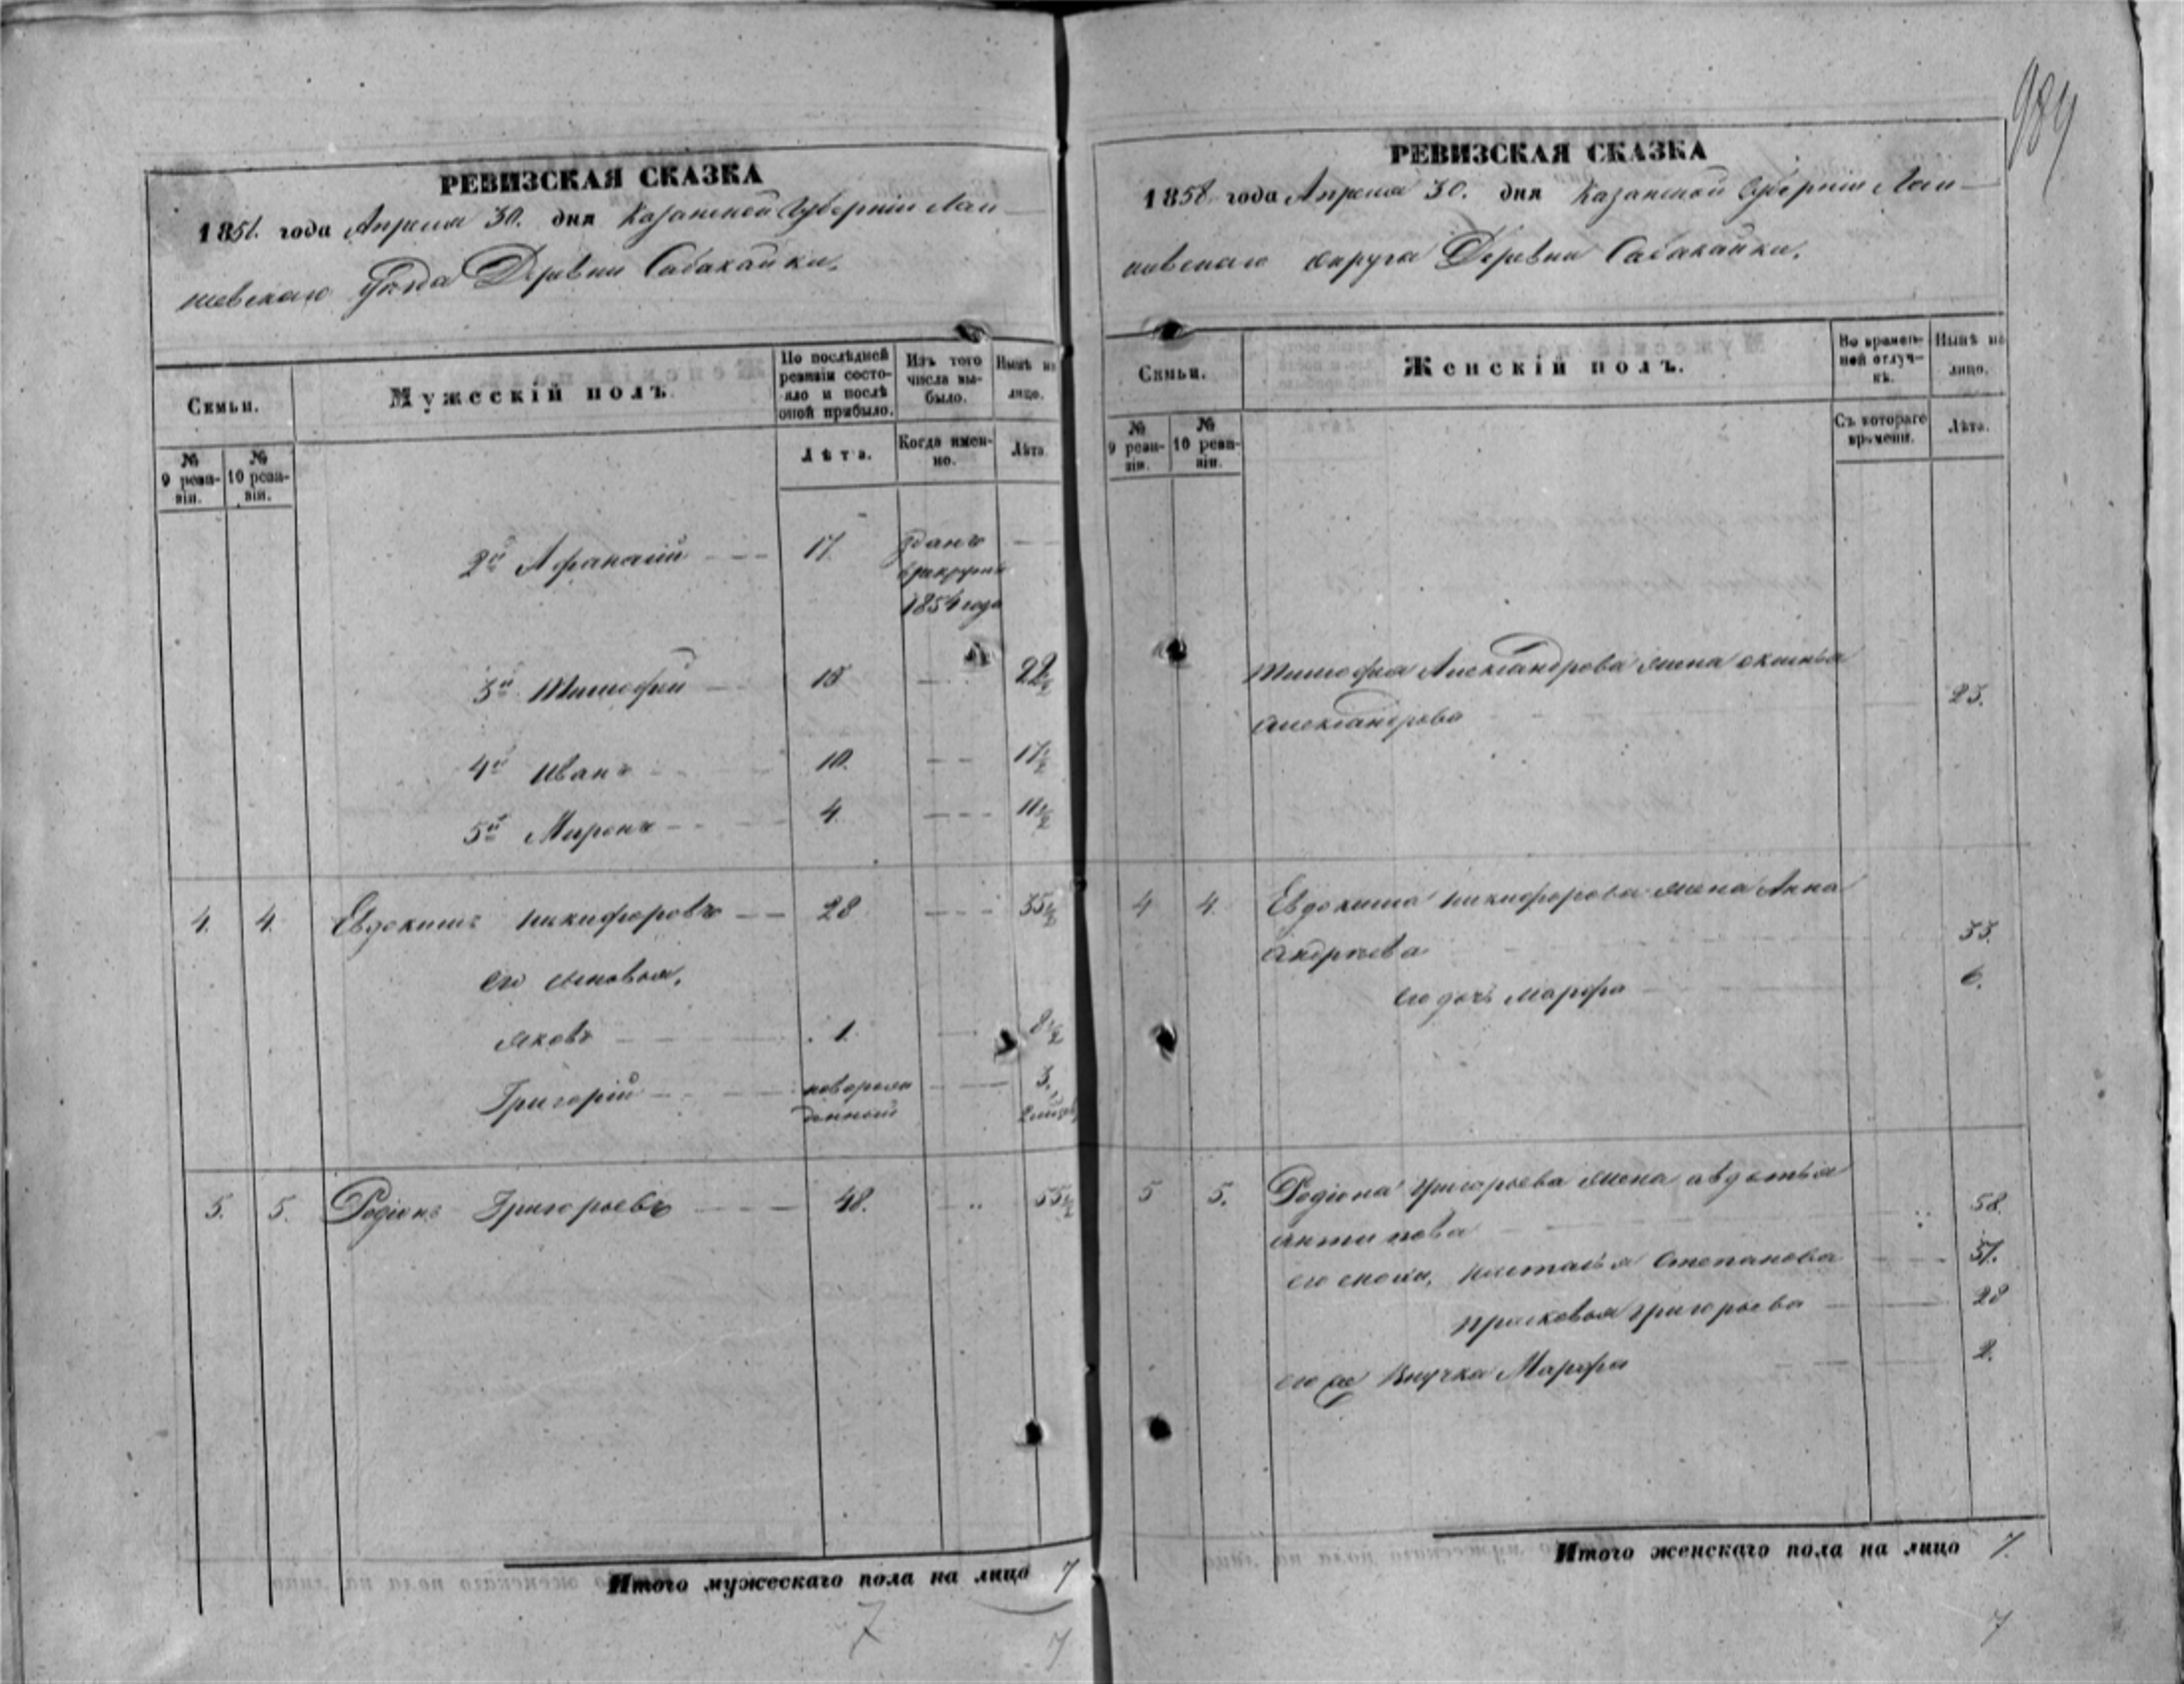 984
РЕВИЗСКАЯ СКАЗКА
1858. года Апреля 30. дня Казанской Губерніи Лаи
шевскаго Уѣзда Деревни Сабакайки.
Семьи.
Мужескій полъ
По послѣдней ревизіи состояло и послѣ оной прибыло.
Изъ того числа выбыло.
Нынѣ на лицо.
№ 9 ревизіи.
№ 10 ревизіи.
Лѣта.
Когда именно.
Лѣта
2й Афанасій 17. зданъ
в рекруты
1854 года
3й Тимофей 15 22½
4й Иванъ 10. 17½
5й Миронъ 4. 11½
4. 4. Евдокимъ Никифоровъ 28 35½
его сыновья,
Яковъ 1. 8½
Григорій новорож 3.
денный
5. 5. Родіонъ Григорьевъ 48. 55½
Итого мужескаго пола на лицо 7
7
7
РЕВИЗСКАЯ СКАЗКА
1858 года Апреля 30. дня Казанской Губерніи Лаи
шевскаго округа Деревни Сабакайки.
Семьи.
Женскій полъ.
Во временной отлучкѣ.
Нынѣ на лицо.
№ 9 ревизіи.
№ 10 ревизіи.
Съ котораго времени.
Лѣта.
Тимофея Александрова жена
Александрова 23.
4 4. Евдокима Никифорова жена Анна
Андреева 33.
его дочь Марфа 6.
5 5. Родіона Григорьева жена Авдотья
Антипова 58.
его снохи, Наталья Степанова 37.
Прасковья Григорьева 28
его же Внучка Марфа 2.
Итого женскаго пола на лицо 7.
7